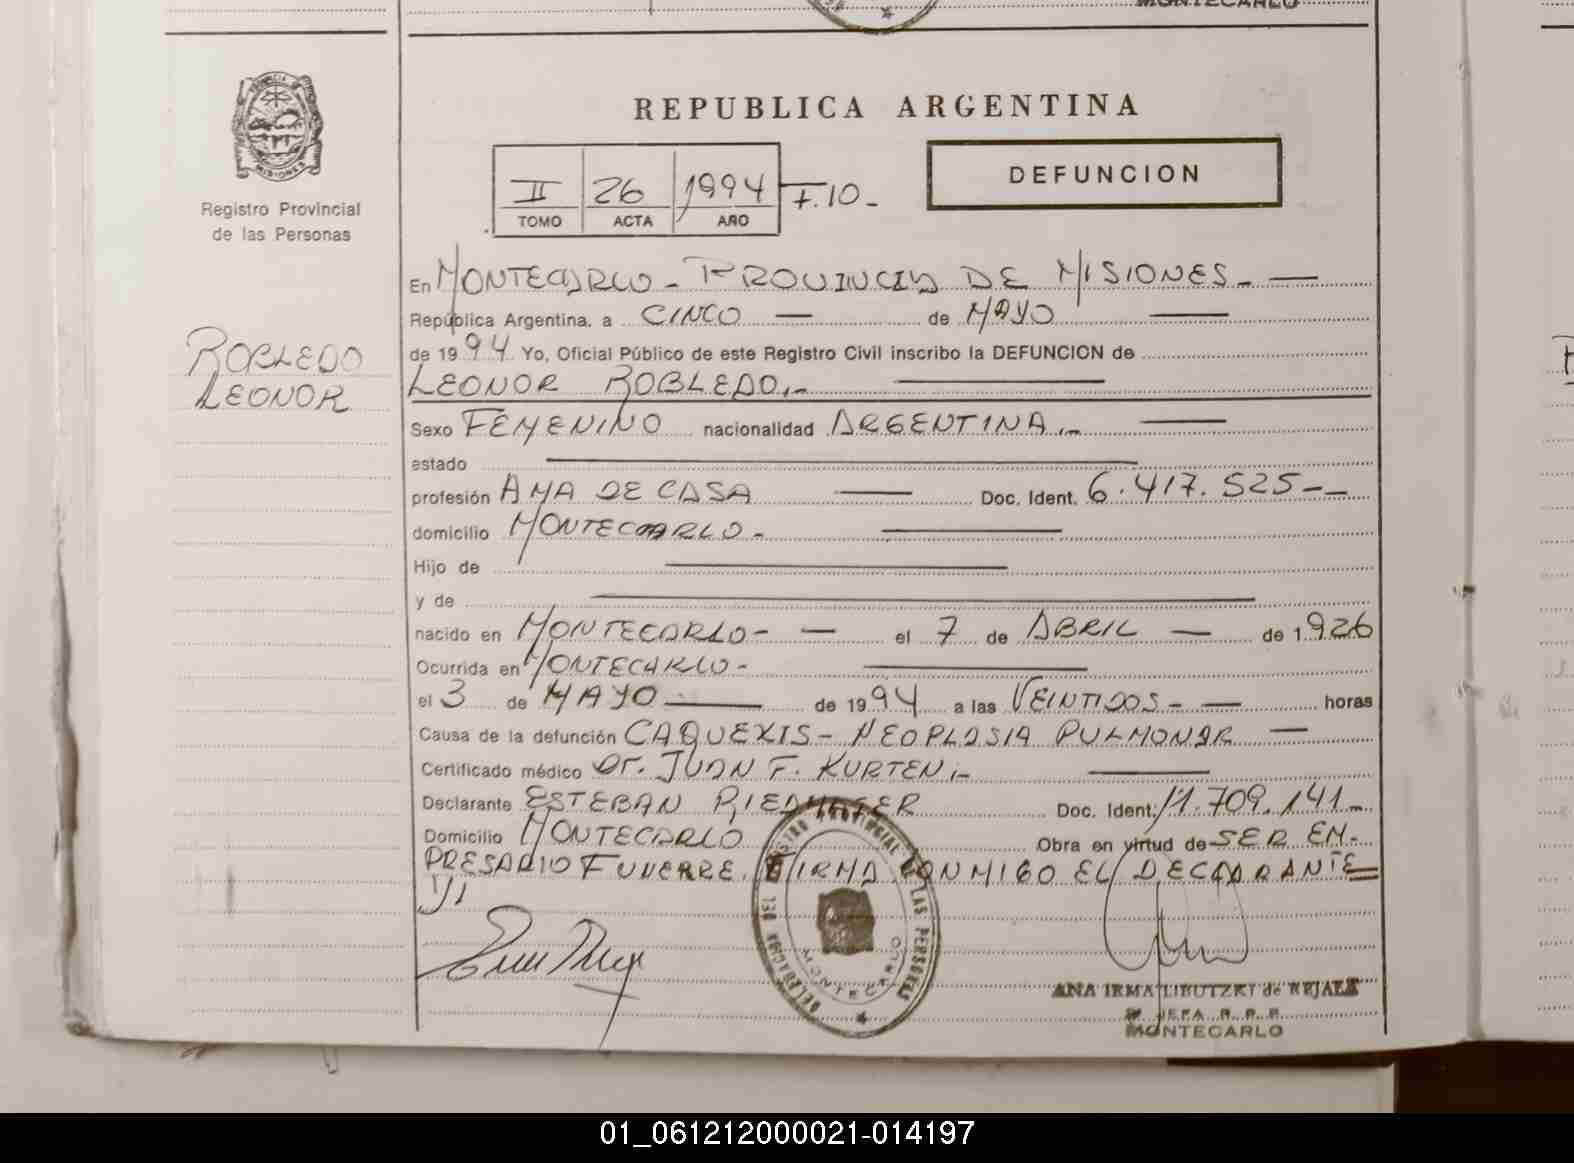 MONTECARLO
REPUBLICA ARGENTINA
PROVINCIA
MISIONES
Registro Provincial
de las Personas
II 26 1994 F.10-
TOMO ACTA AÑO
DEFUNCION
ROBLEDO
LEONOR
En MONTECARLO - PROVINCIA DE MISIONES -
República Argentina, a CINCO — de MAYO —
de 1994 Yo, Oficial Público de este Registro Civil inscribo la DEFUNCION de
LEONOR ROBLEDO.- —
Sexo FEMENINO nacionalidad ARGENTINA.- —
estado —
profesión AMA DE CASA — Doc. Ident. 6.417.525-—
domicilio MONTECARLO - —
Hijo de —
y de —
nacido en MONTECARLO - — el 7 de ABRIL — de 1.926
Ocurrida en MONTECARLO - —
el 3 de MAYO — de 1994 a las VEINTIDOS - — horas
Causa de la defunción CAQUEXIS - NEOPLASIA PULMONAR —
Certificado médico Dr. JUAN F. KURTEN.- —
Declarante ESTEBAN RIEDMAIER Doc. Ident. 11.709.141-
Domicilio MONTECARLO Obra en virtud de SER EM-
PRESARIO FUNERRE. FIRMA CONMIGO EL DECLARANTE =
REGISTRO PROVINCIAL DE LAS PERSONAS
DELEGACION
MONTECARLO
ANA IRMA LIBUTZKI de REJALA
JEFA R. P. P.
MONTECARLO
01_061212000021-014197